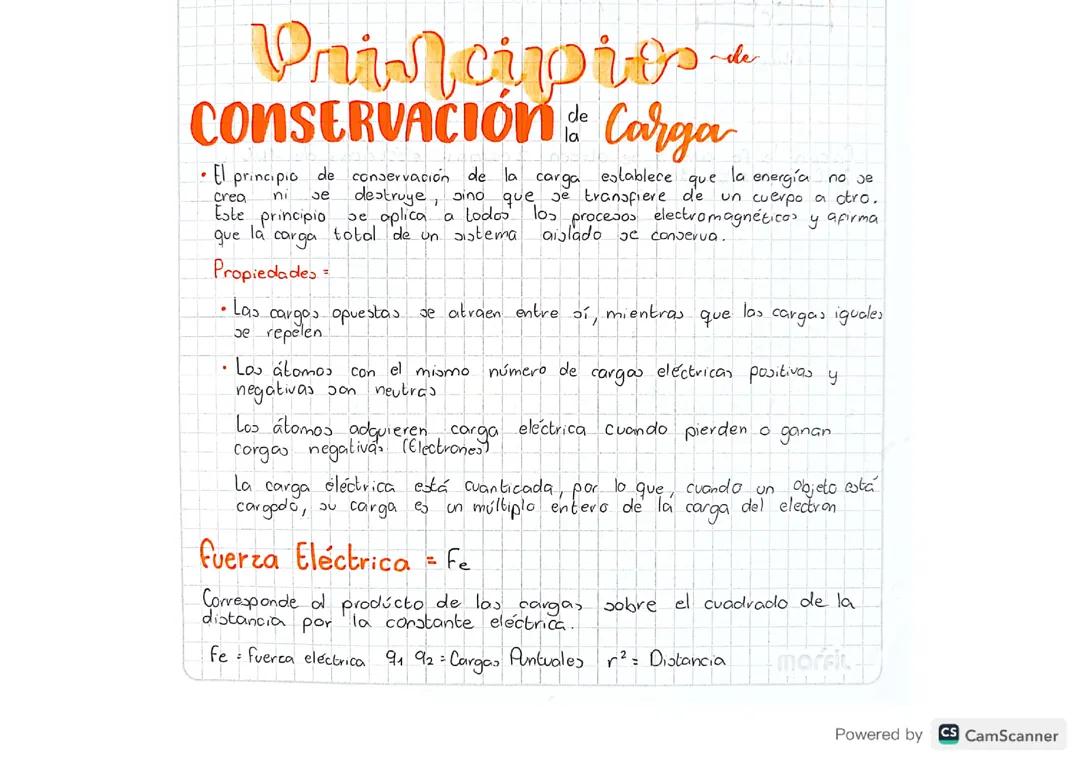 Principio de
CONSERVACIÓN de la Carga
• El principio de conservación de la carga establece que la energía no se
crea ni se destruye, sino que se transfiere de un cuerpo a otro.
Este principio se aplica a todos los procesos electromagnéticos y afirma
que la carga total de un sistema aislado se conserva.
Propiedades =
• Las cargas opuestas se atraen entre sí, mientras que las cargas iguales
se repelen
• Los átomos con el mismo número de cargas eléctricas positivas y
negativas son neutras
Los átomos adquieren carga eléctrica cuando pierden o ganan
cargas negativas (Electrones)
La carga eléctrica está cuanticada, por lo que, cuando un objeto está
cargado, su carga es un múltiplo entero de la carga del electron
Fuerza Eléctrica = Fe
Corresponde al producto de las cargas sobre el cuadrado de la
distancia por la constante eléctrica.
Fe = Fuerza eléctrica q1 q2 = Cargas Puntuales r² = Distancia
marfil
Powered by CS CamScanner